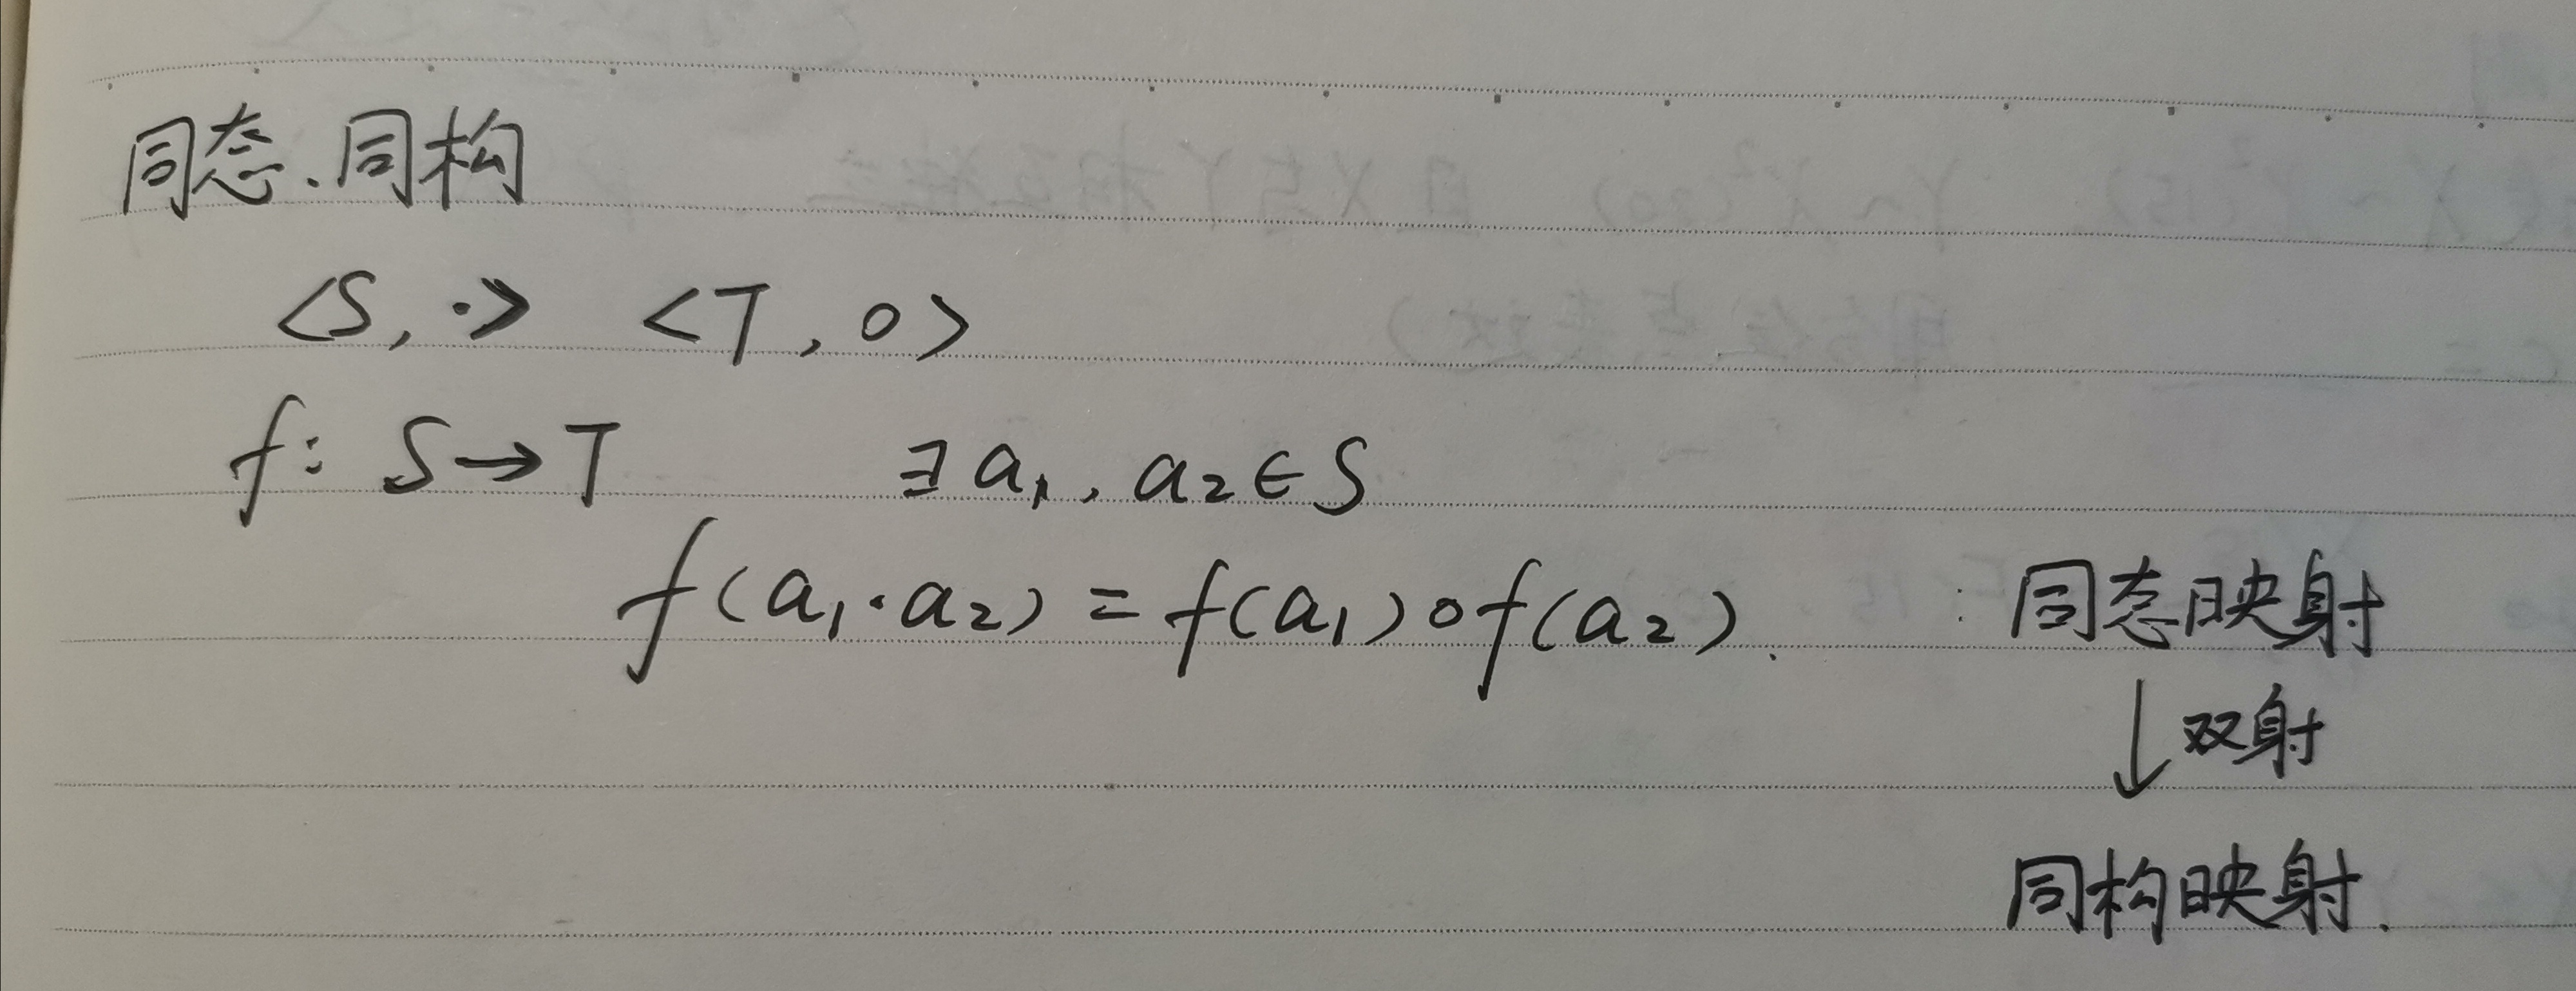 同态.同构
<S, ·> <T, o>
f: S→T ∃ a₁, a₂∈S
f(a₁·a₂) = f(a₁)∘f(a₂). : 同态映射
↓双射
同构映射.